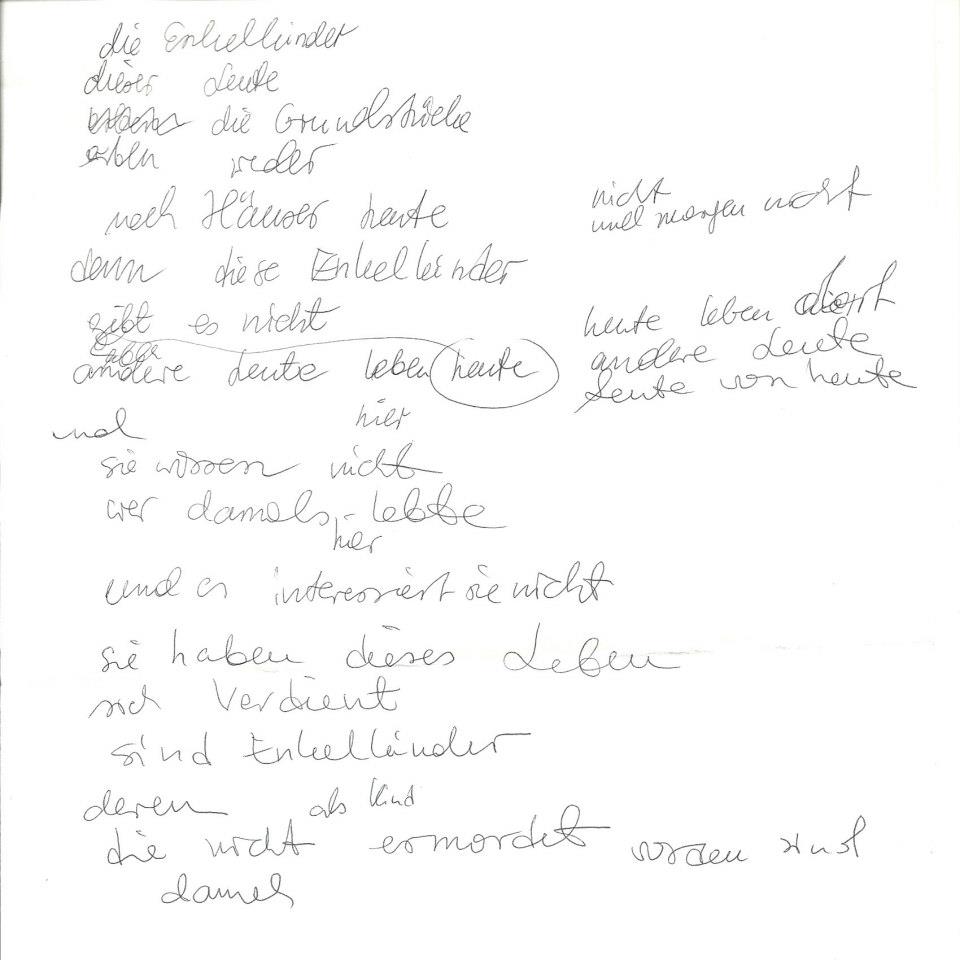 die Enkelkinder
dieser Leute
die Grundstücke
erben weder
noch Häuser heute
nicht
und morgen nicht
denn diese Enkelkinder
gibt es nicht
andere Leute leben heute
hier
heute leben dort
andere Leute
Leute von heute
und
sie wissen nicht
wer damals lebte
hier
und es interessiert sie nicht
sie haben dieses Leben
sich verdient
sind Enkelkinder
deren als Kind
die nicht ermordet worden sind
damals